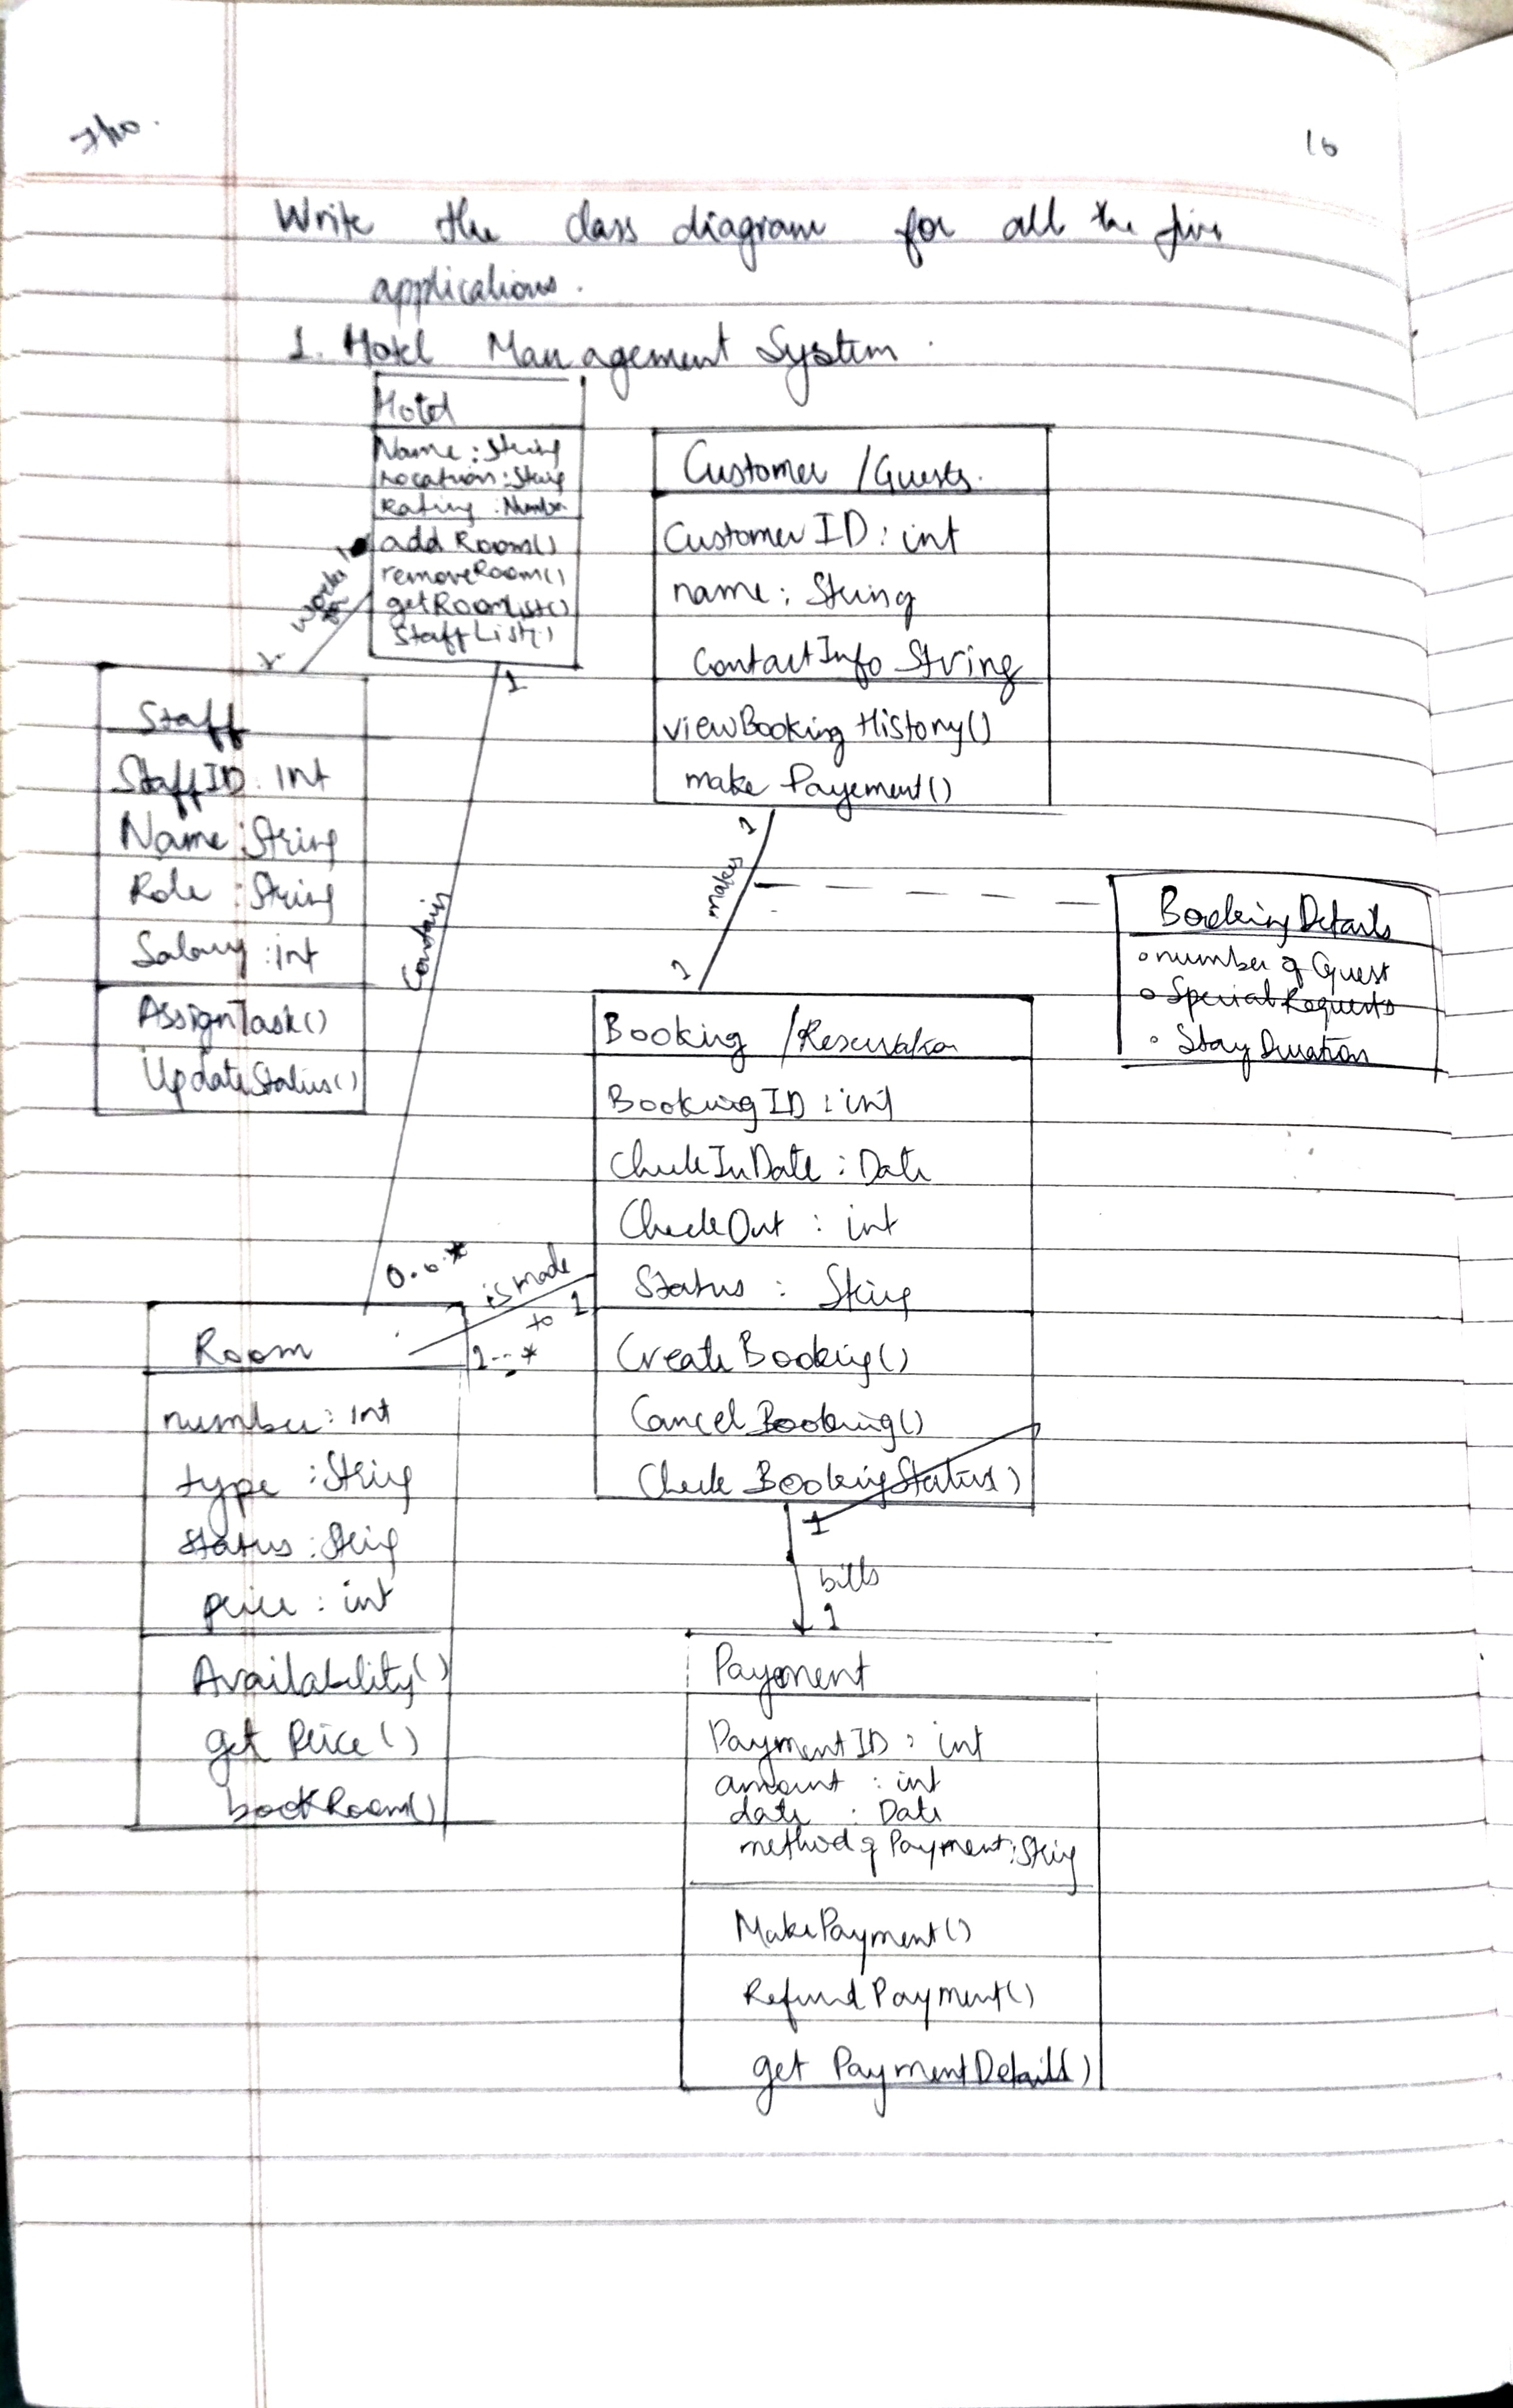 16
Write the class diagram for all the five
applications.
1. Hotel Management System.
Hotel
Name : String
Location : String
Rating : Number
add Room()
removeRoom()
getRoomList()
StaffList()
works for
1
Customer / Guests.
CustomerID : int
name : String
ContactInfo String
viewBooking History()
make Payement()
Staff
StaffID : Int
Name : String
Role : String
Salary : int
AssignTask()
UpdateStatus()
1
Contains
0..*
1
makes
1
Booking Details
number of Guest
Special Requests
Stay Duration
Booking / Reservation
BookingID : int
CheckInDate : Date
CheckOut : int
Status : String
Create Booking()
Cancel Booking()
Check BookingStatus()
is made
to 1
1...*
Room
number : Int
type : String
status : String
price : int
Availability()
get Price()
bookRoom()
1
bills
1
Payment
PaymentID : int
amount : int
date : Date
method of Payment : String
MakePayment()
Refund Payment()
get PaymentDetails()